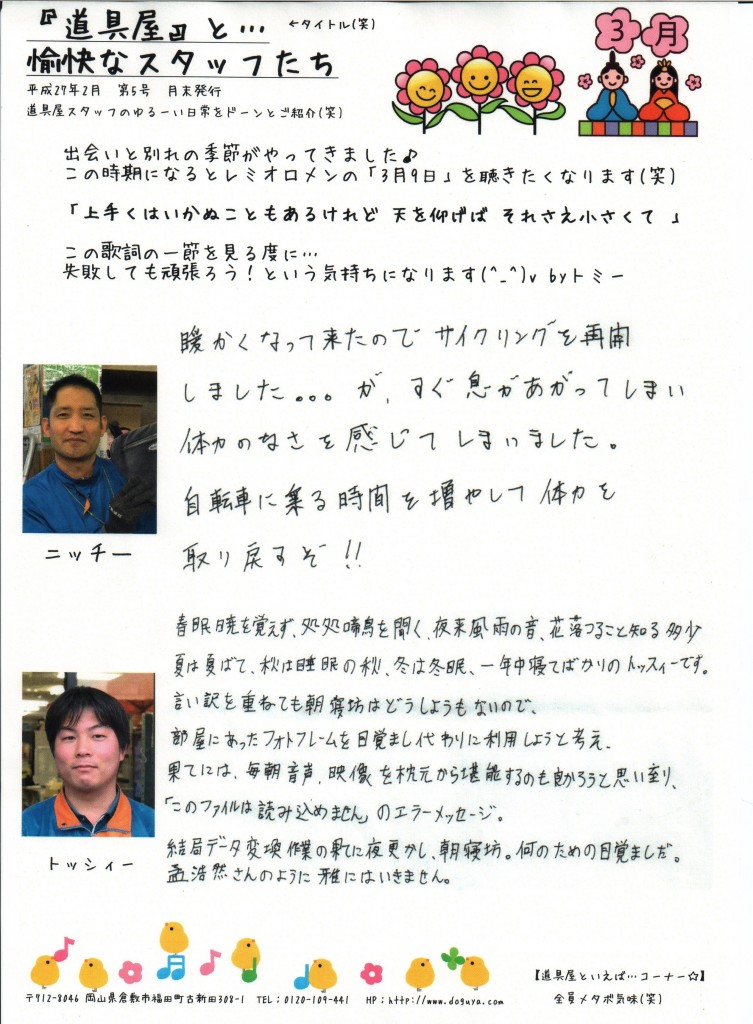 『道具屋』と… ←タイトル(笑)
愉快なスタッフたち
平成27年2月 第5号 月末発行
道具屋スタッフのゆるーい日常をドーンとご紹介(笑)
3月
出会いと別れの季節がやってきました♪
この時期になるとレミオロメンの「3月9日」を聴きたくなります(笑)
「上手くはいかぬこともあるけれど 天を仰げば それさえ小さくて 」
この歌詞の一節を見る度に…
失敗しても頑張ろう!という気持ちになります(^_^)v byトミー
暖かくなって来たのでサイクリングを再開
しました。。。が、すぐ息があがってしまい
体力のなさを感じてしまいました。
自転車に乗る時間を増やして体力を
取り戻すぞ!!
ニッチー
春眠暁を覚えず、処処啼鳥を聞く、夜来風雨の音、花落つること知る多少
夏は夏ばて、秋は睡眠の秋、冬は冬眠、一年中寝てばかりのトッスィーです。
言い訳を重ねても朝寝坊はどうしようもないので、
部屋にあったフォトフレームを目覚まし代わりに利用しようと考え、
果てには、毎朝音声、映像を枕元から堪能するのも良かろうと思い至り、
「このファイルは読み込めません」のエラーメッセージ。
結局データ変換作業の果てに夜更かし、朝寝坊。何のための目覚ましだ。
孟浩然さんのように雅にはいきません。
トッシィー
【道具屋といえば…コーナー☆】
全員メタボ気味(笑)
〒712-8046 岡山県倉敷市福田町古新田308-1 TEL:0120-109-441 HP:http://www.doguya.com